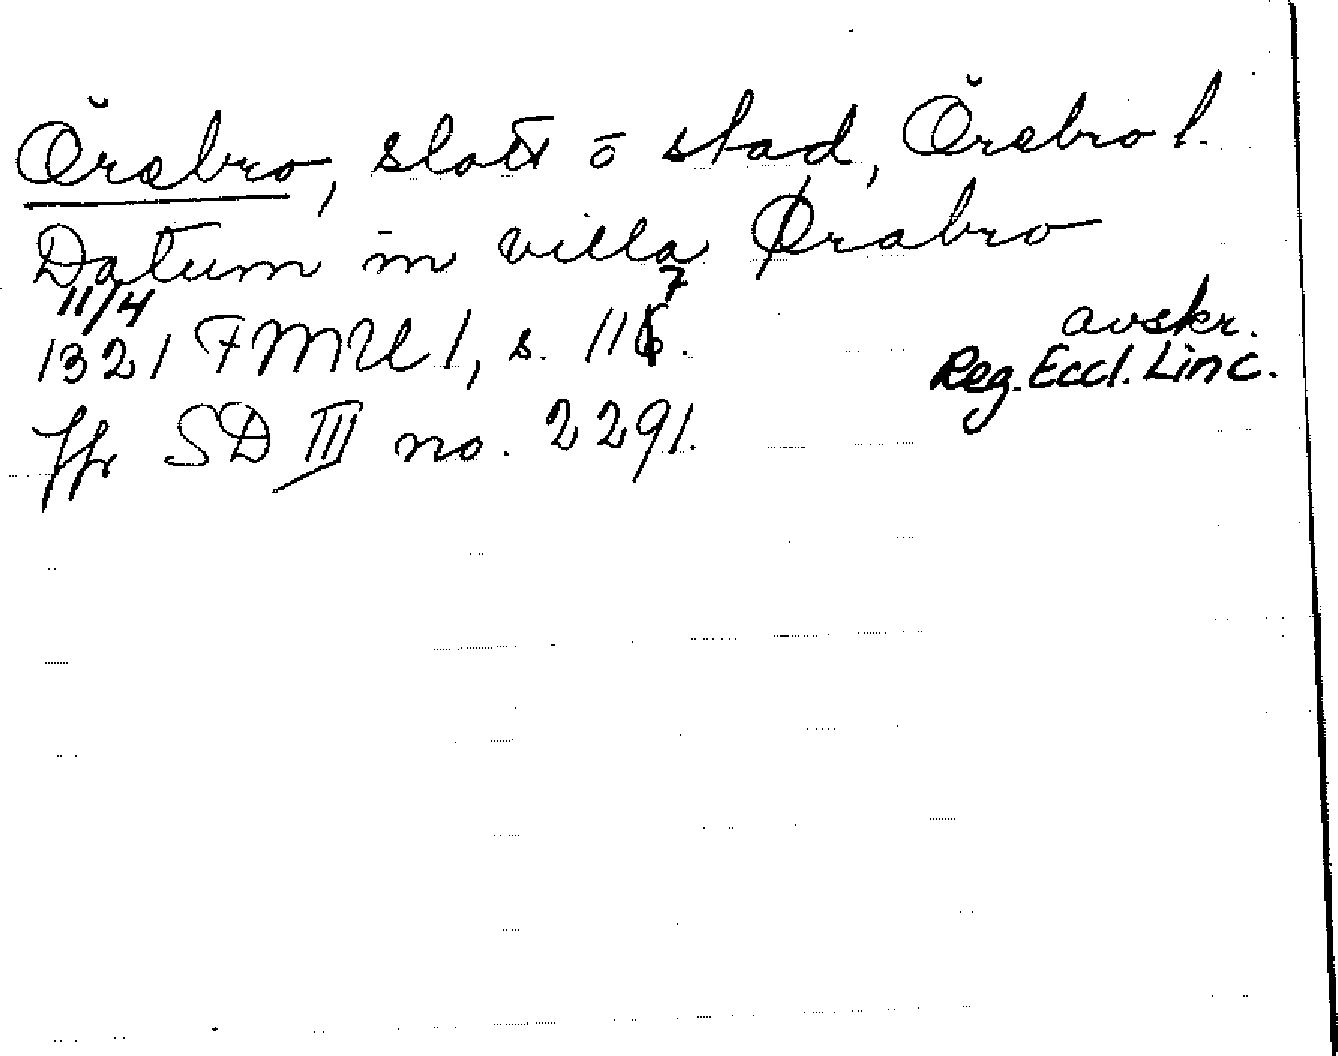 Örebro, slott o stad, Örebro l.
Datum in villa Ørabro
11/4
1321 FMU 1, s. 117.
avskr.
Reg. Eccl. Linc.
Jfr SD III no. 2291.